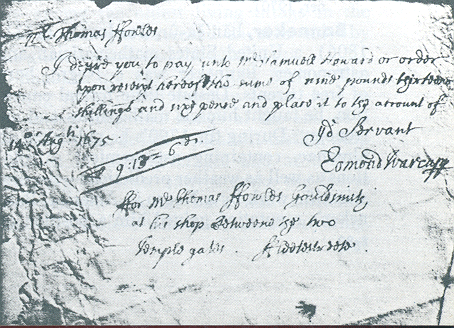 Mr. Thomas ffowles
I desire you to pay unto Mr Samuell Howard or order
upon receipt hereof the sume of nine pounds thirteene
shillings and six pence and place it to the account of
Yor Servant
14o Augth 1675.
Edmond Warcupp
£ 9:13s 6d.
ffor Mr Thomas ffowles Gouldsmith
at his shop betweene the two
temple gates. ffleetestreete.